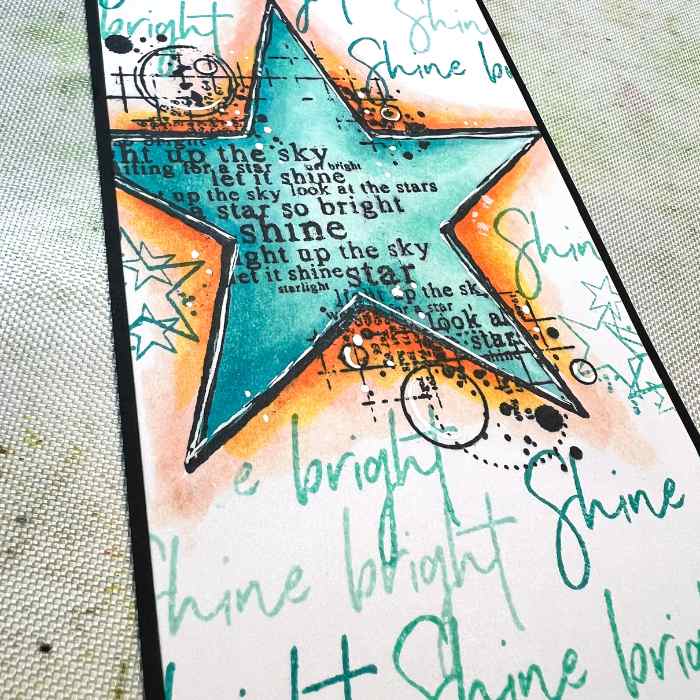 bright
Shin
Shine br
bright
ht up the sky
iting for a star
so bright
let it shine
t up the sky look at the stars
a star so bright
shine
ight up the sky
let it shine star
starlight
light up the sk
star
look at
star
Shin
e bright
Shine
Shine bright
bright
Shine brig